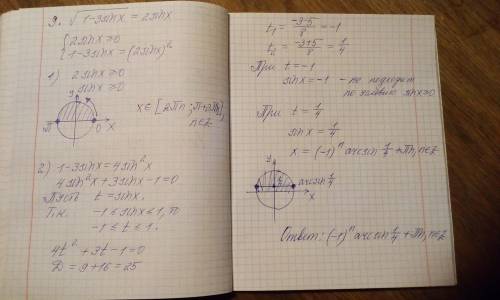 9. √1-3sinx = 2sinx
{2sinx ≥ 0
{1-3sinx = (2sinx)²
1) 2sinx ≥ 0
sinx ≥ 0
y
π 0 x
x ∈ [2πn; π+2πn],
n∈Z
2) 1-3sinx = 4sin²x
4sin²x + 3sinx - 1 = 0
Пусть t = sinx.
Т.к. -1 ≤ sinx ≤ 1, то
-1 ≤ t ≤ 1.
4t² + 3t - 1 = 0
D = 9 + 16 = 25
t₁ = -3-5/8 = -1
t₂ = -3+5/8 = 1/4
При t = -1
sinx = -1 - не подходит
по условию sinx ≥ 0
При t = 1/4
sinx = 1/4
x = (-1)ⁿ arcsin 1/4 + πn, n∈Z
y
arcsin 1/4
x
Ответ: (-1)ⁿ arcsin 1/4 + πn, n∈Z